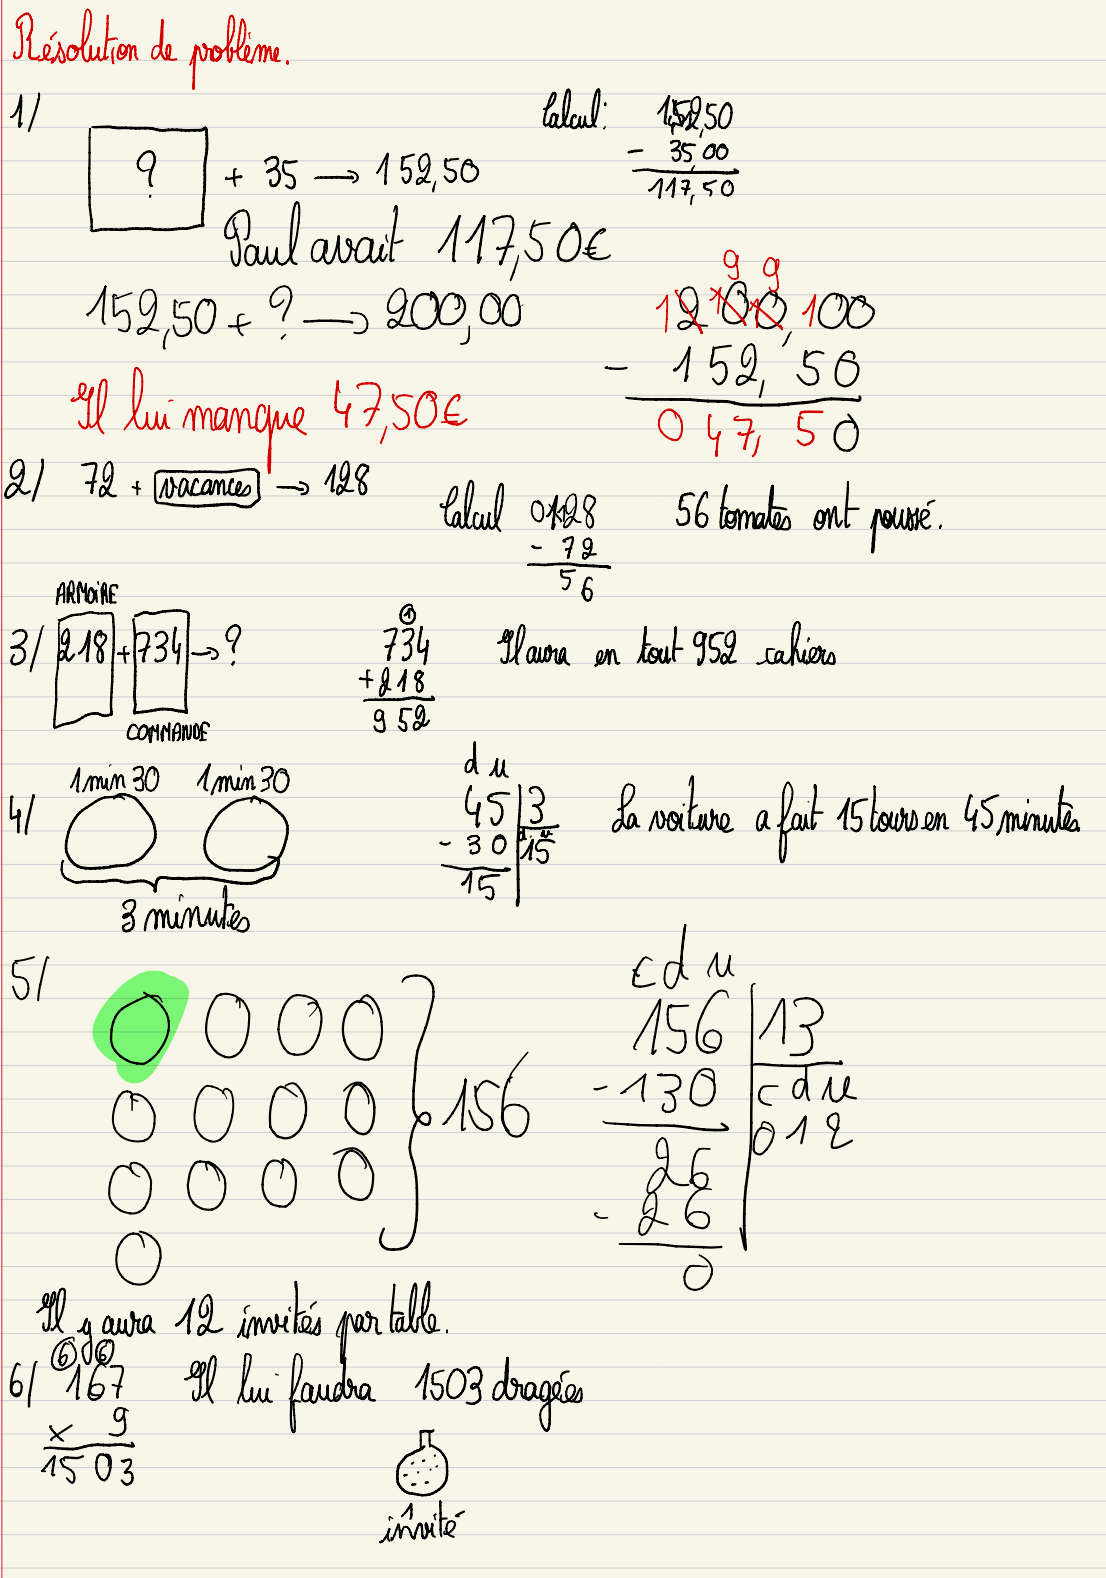 Résolution de problème.
1/
? + 35 → 152,50
Calcul: 152,50
- 35,00
117,50
Paul avait 117,50€
152,50 + ? → 200,00
9 9
12 10 10, 100
- 152, 50
0 47, 50
Il lui manque 47,50€
2/ 72 + vacances → 128
Calcul 0128
- 72
56
56 tomates ont poussé.
ARMOIRE
3/ 218 + 734 → ?
COMMANDE
1
734
+ 218
952
Il aura en tout 952 cahiers
4/ 1 min 30 1 min 30
3 minutes
d u
45 3
- 30 d u
15 15
La voiture a fait 15 tours en 45 minutes
5/
156
c d u
156 13
- 130 c d u
26 012
- 26
0
Il y aura 12 invités par table.
6 6
6/ 167 Il lui faudra 1503 dragées
x 9
1503
1
invité